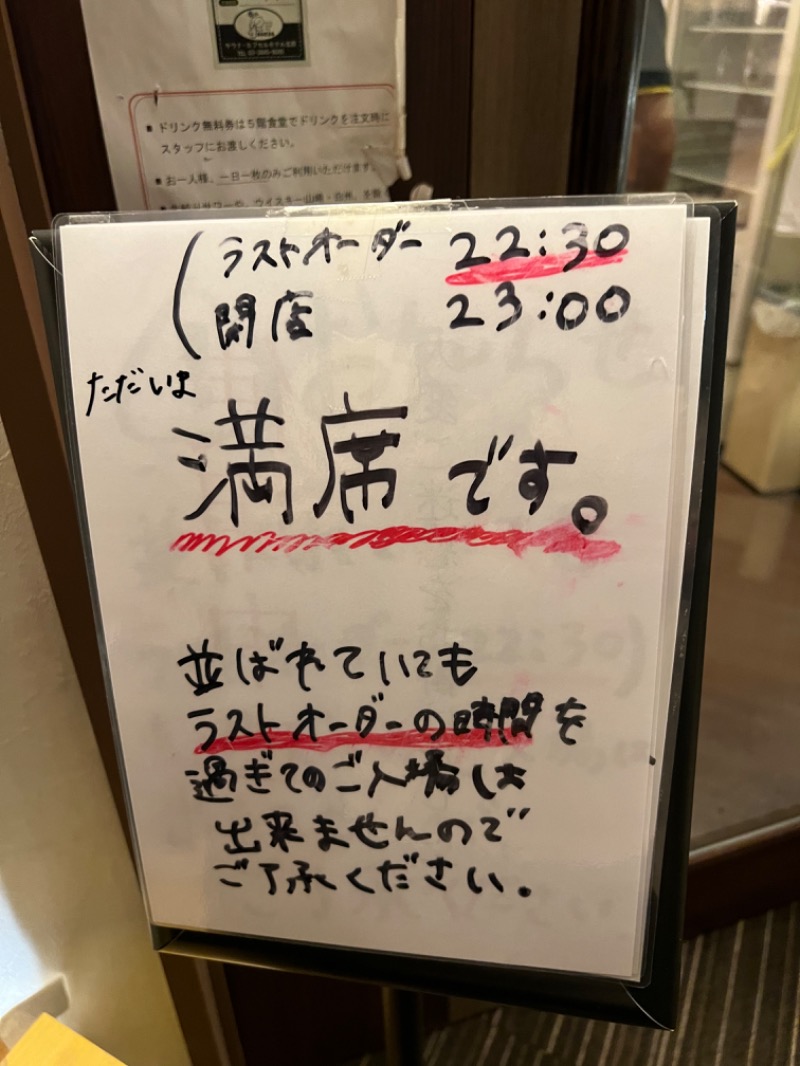 ■ ドリンク無料券は5階食堂でドリンクを注文時に
スタッフにお渡しください。
■ お一人様、一日一枚のみご利用いただけます。
ラストオーダー 22:30
閉店 23:00
ただいま
満席です。
並ばれていても
ラストオーダーの時間を
過ぎてのご入場は
出来ませんので
ご了承ください。